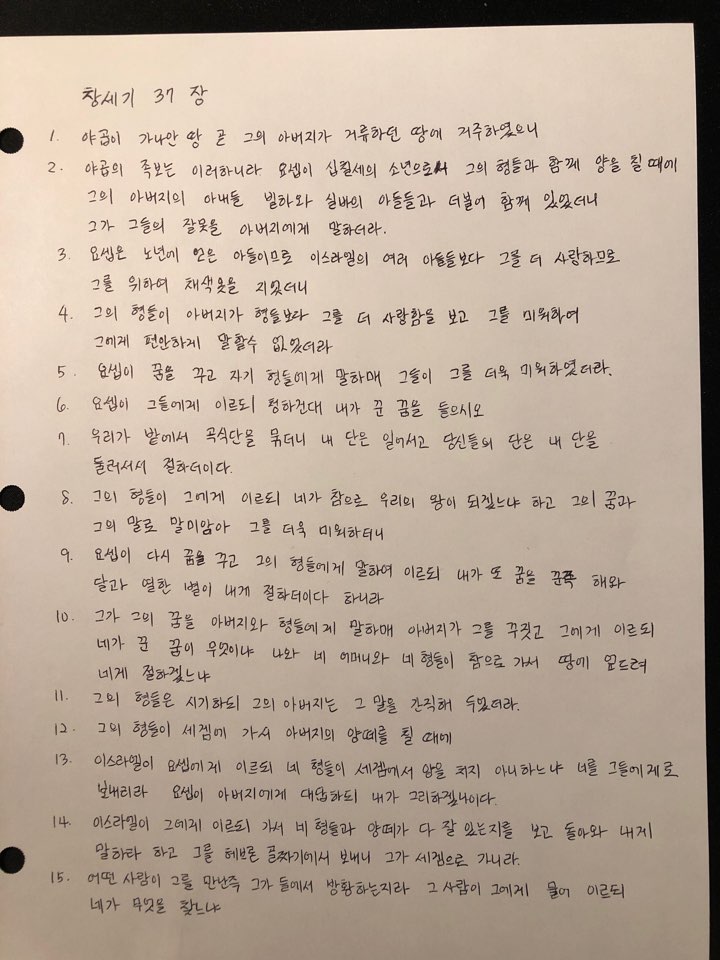 창세기 37 장
1. 야곱이 가나안 땅 곧 그의 아버지가 거류하던 땅에 거주하였으니
2. 야곱의 족보는 이러하니라 요셉이 십칠세의 소년으로서 그의 형들과 함께 양을 칠 때에
그의 아버지의 아내들 빌하와 실바의 아들들과 더불어 함께 있었더니
그가 그들의 잘못을 아버지에게 말하더라.
3. 요셉은 노년에 얻은 아들이므로 이스라엘의 여러 아들들보다 그를 더 사랑하므로
그를 위하여 채색옷을 지었더니
4. 그의 형들이 아버지가 형들보다 그를 더 사랑함을 보고 그를 미워하여
그에게 편안하게 말할수 없었더라
5. 요셉이 꿈을 꾸고 자기 형들에게 말하매 그들이 그를 더욱 미워하였더라.
6. 요셉이 그들에게 이르되 청하건대 내가 꾼 꿈을 들으시오
7. 우리가 밭에서 곡식단을 묶더니 내 단은 일어서고 당신들의 단은 내 단을
둘러서서 절하더이다.
8. 그의 형들이 그에게 이르되 네가 참으로 우리의 왕이 되겠느냐 하고 그의 꿈과
그의 말로 말미암아 그를 더욱 미워하더니
9. 요셉이 다시 꿈을 꾸고 그의 형들에게 말하여 이르되 내가 또 꿈을 꾼즉 해와
달과 열한 별이 내게 절하더이다 하니라
10. 그가 그의 꿈을 아버지와 형들에게 말하매 아버지가 그를 꾸짖고 그에게 이르되
네가 꾼 꿈이 무엇이냐 나와 네 어머니와 네 형들이 참으로 가서 땅에 엎드려
네게 절하겠느냐
11. 그의 형들은 시기하되 그의 아버지는 그 말을 간직해 두었더라.
12. 그의 형들이 세겜에 가서 아버지의 양떼를 칠 때에
13. 이스라엘이 요셉에게 이르되 네 형들이 세겜에서 양을 치지 아니하느냐 너를 그들에게로
보내리라 요셉이 아버지에게 대답하되 내가 그리하겠나이다.
14. 이스라엘이 그에게 이르되 가서 네 형들과 양떼가 다 잘 있는지를 보고 돌아와 내게
말하라 하고 그를 헤브론 골짜기에서 보내니 그가 세겜으로 가니라.
15. 어떤 사람이 그를 만난즉 그가 들에서 방황하는지라 그 사람이 그에게 물어 이르되
네가 무엇을 찾느냐